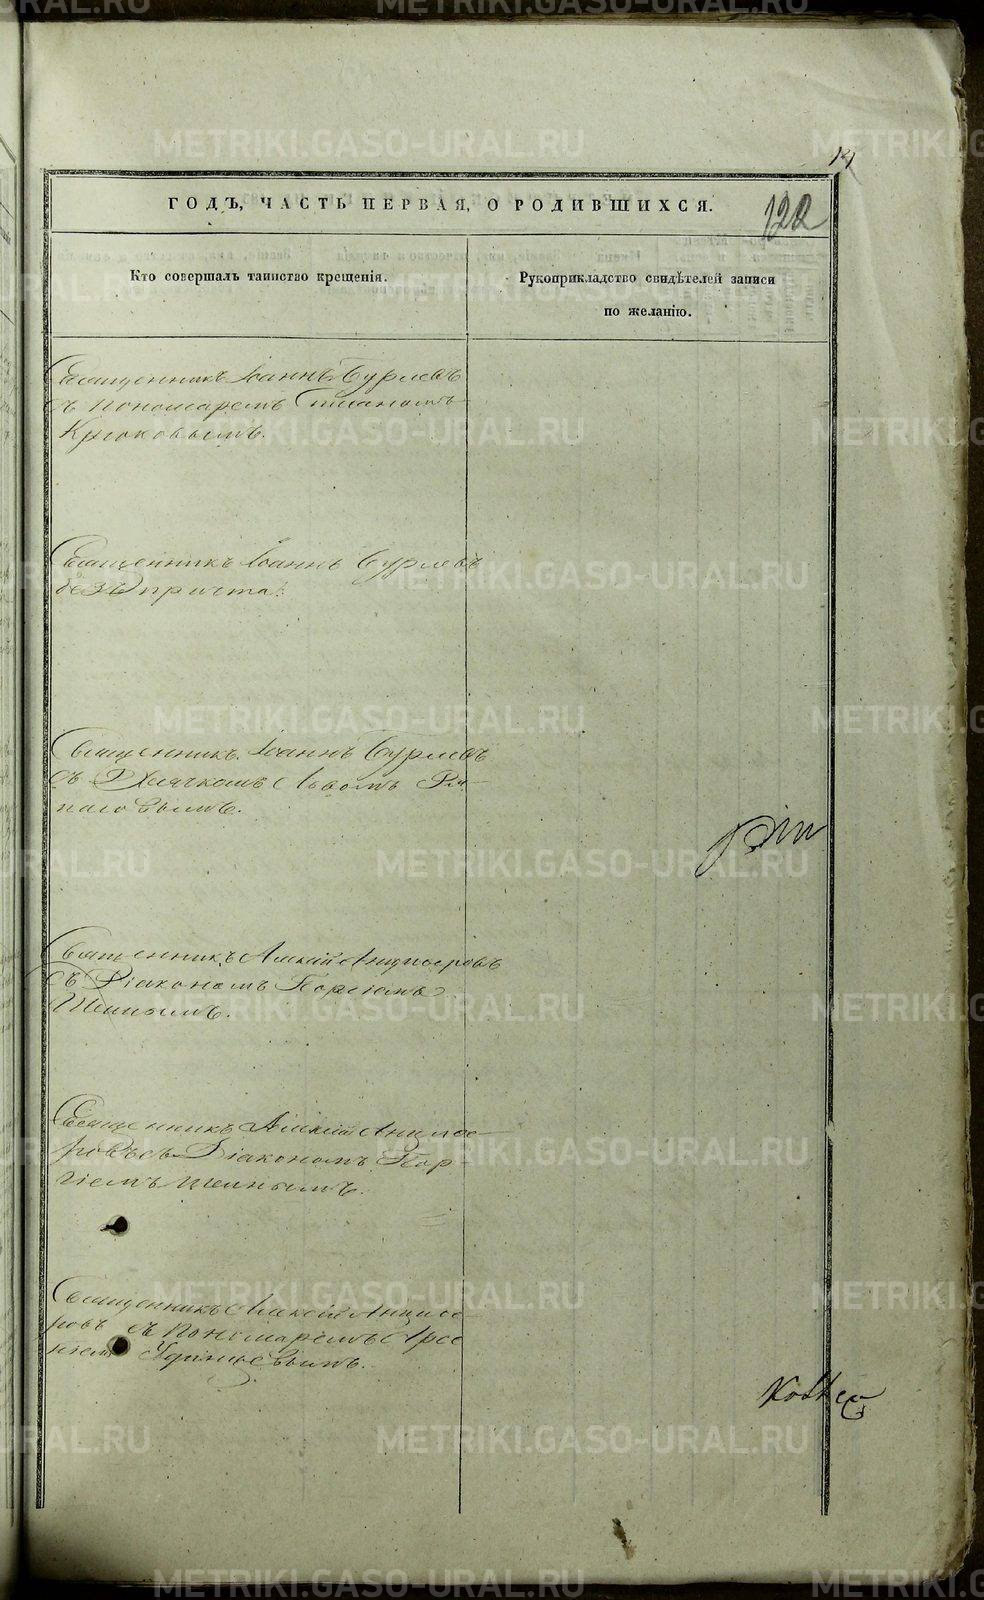 122
ГОДЪ, ЧАСТЬ ПЕРВАЯ, О РОДИВШИХСЯ.
Кто совершалъ таинство крещенія.
Рукоприкладство свидѣтелей записи
по желанію.
Священникъ Іоаннъ Бурлевъ
съ Пономаремъ
Крюковымъ.
Священникъ Іоаннъ Бурлевъ
безъ причта.
Священникъ Іоаннъ Бурлевъ
съ Дьячкомъ Львомъ
Священникъ Алексій
съ Діакономъ Георгіемъ
Шеинымъ.
Священникъ Алексій
ровъ съ Діакономъ Геор-
гіемъ Шеинымъ.
Священникъ Алексій
ровъ съ Пономаремъ Арсе
ніемъ Удинцевымъ.
METRIKI.GASO-URAL.RU